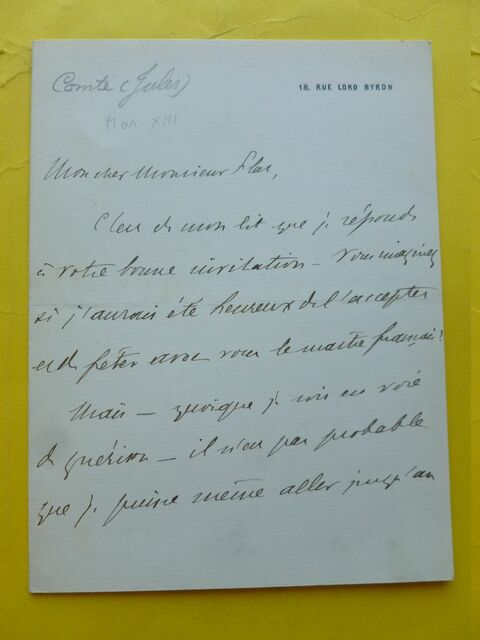 Comte (Jules)
18, RUE LORD BYRON
Mon cher Monsieur
C'est de mon lit que je réponds
à votre bonne invitation – Vous imaginez
si j'aurais été heureux de l'accepter
et de fêter avec vous le maître français!
Mais – quoique je sois en voie
de guérison – il n'est pas probable
que je puisse même aller jusqu'au